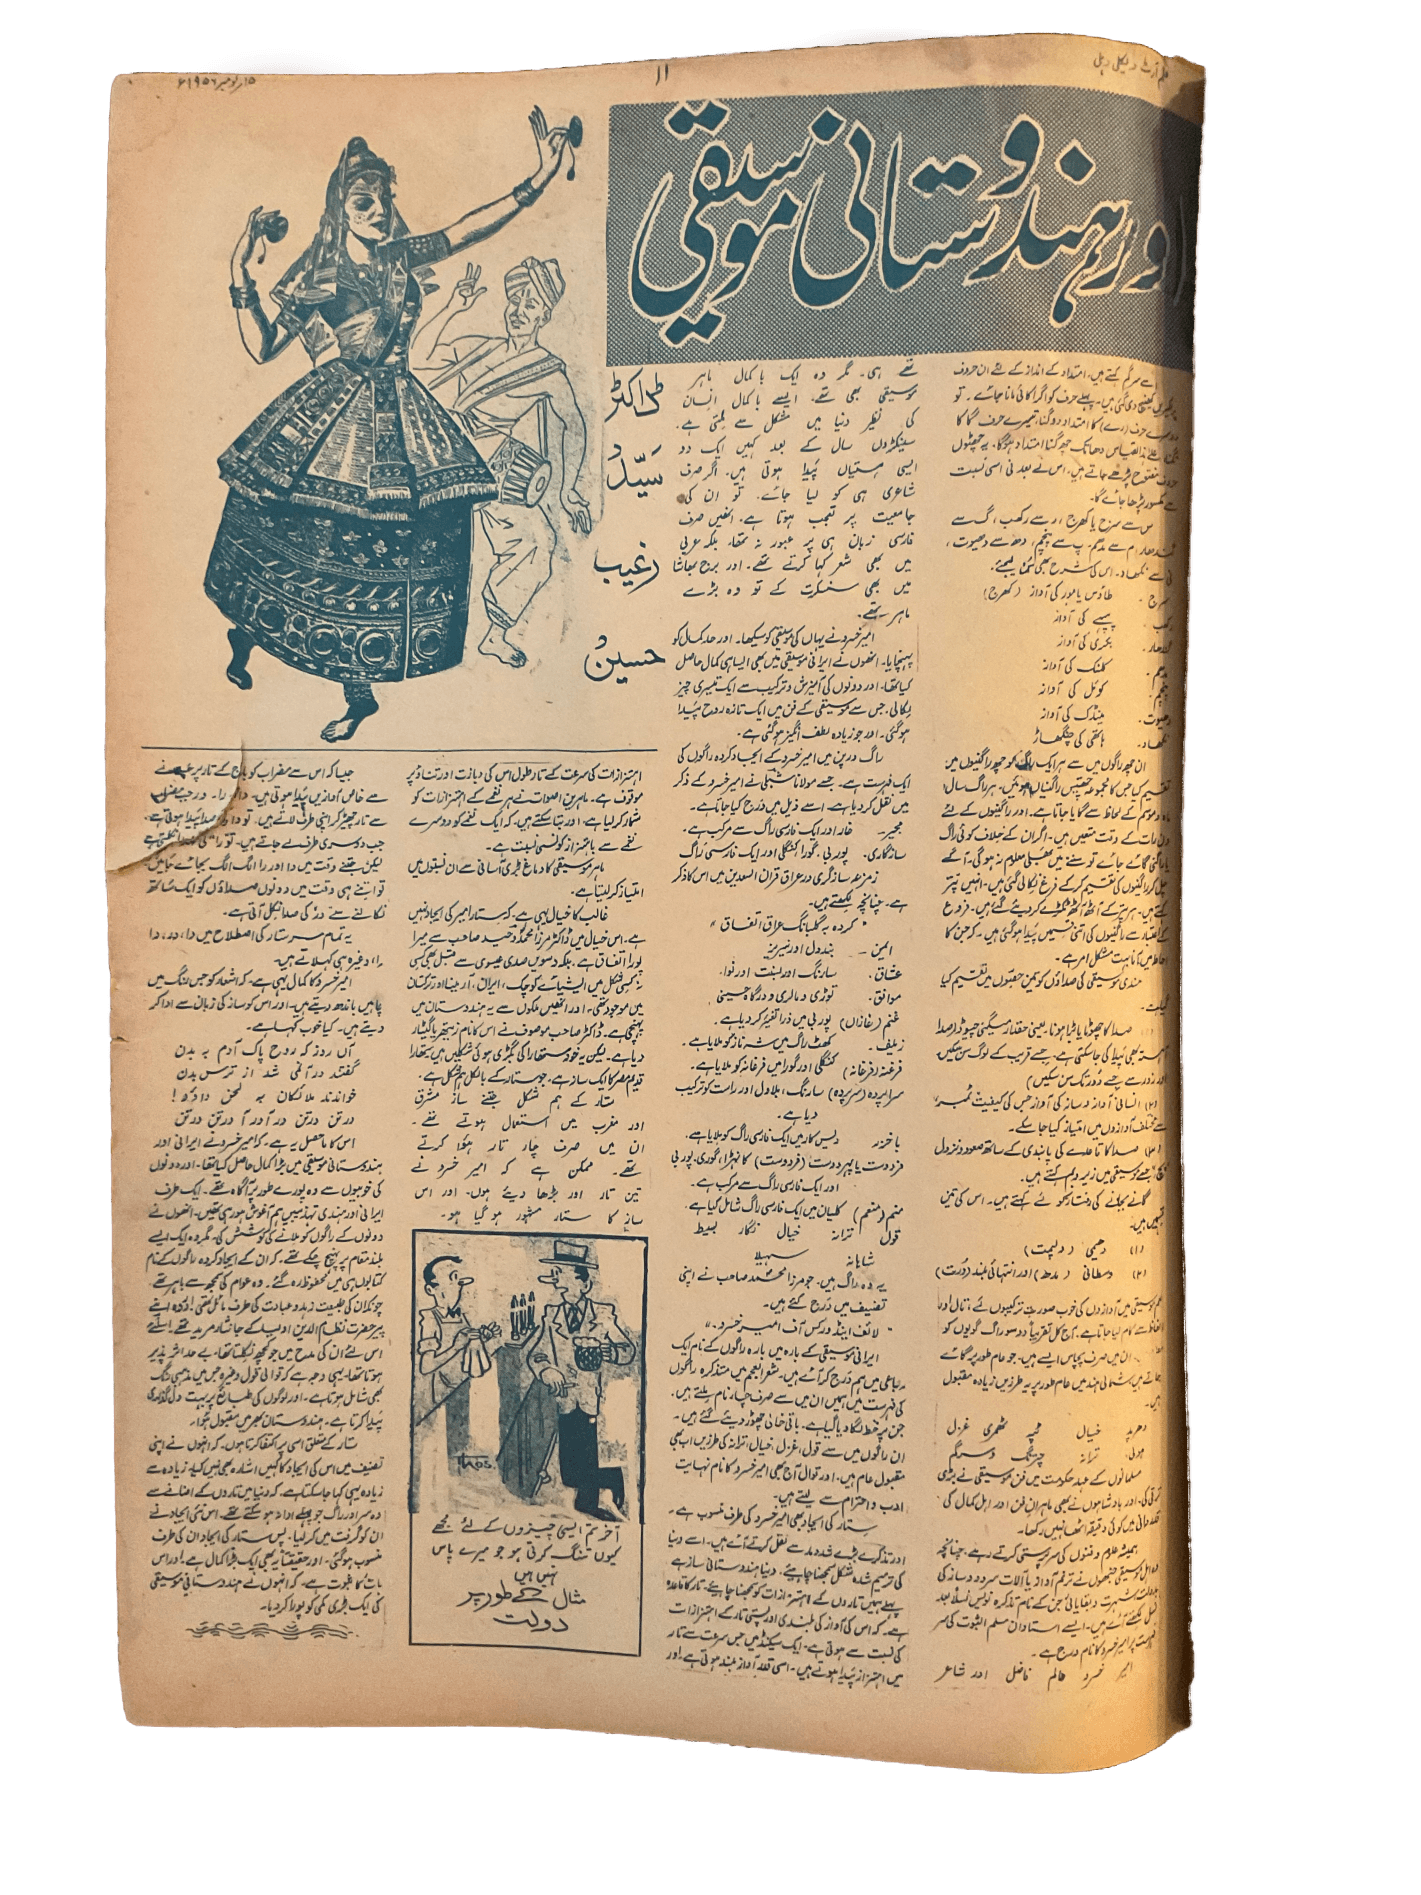 فلم آرٹ ویکلی دہلی
۱۱
۱۵ نومبر ۱۹۵۶ء
اور ہندوستانی موسیقی
ڈاکٹر
سیّد
رغیب
حسین
اسے سرگم کہتے ہیں۔ امتداد کے انداز کے لئے ان حروف
کھینچ دی گئی ہیں۔ پہلے حرف کو اگر اکائی مانا جائے۔ تو
دوسرے حرف (رے) کا امتداد دوگنا، تیسرے حرف گا کا
س سے سرج یا کھرج، ر سے رکھب، گ سے
گندھار، م سے مدھم۔ پ سے پنچم، دھ سے دھیوت،
نی سے نکھاد۔ اس کی شرح بھی سُن لیجئے۔
سرج ۔ طاؤس یا مور کی آواز (کھرج)
رکھب ۔ پپیہے کی آواز
گندھار ۔ بکری کی آواز
مدھم ۔ کلنگ کی آواز
پنچم ۔ کوئل کی آواز
دھیوت ۔ مینڈک کی آواز
نکھاد ۔ ہاتھی کی چنگھاڑ
ان چھ راگوں میں سے ہر ایک راگ کو چھ راگنیوں میں
تقسیم کیا جس کا مجموعہ چھتیس راگنیاں ہوئیں۔ ہر راگ سال،
ماہ و موسم کے لحاظ سے گایا جاتا ہے۔ اور راگنیوں کے لئے
دن رات کے وقت متعین ہیں۔ اگر ان کے خلاف کوئی راگ
یا راگنی گائے جائے تو سننے میں بھلی معلوم نہ ہوگی۔ آگے
چل کر راگنیوں کی تقسیم کر کے فرع نکالی گئی ہیں۔ انہیں پُتر
کہتے ہیں۔ ہر پتر کے آٹھ آٹھ ٹکڑے کر دیئے گئے ہیں۔ فروع
کے اعتبار سے راگنیوں کی اتنی قسمیں پیدا ہو گئی ہیں۔ کہ جن کا
احاطہ میں آنا بہت مشکل امر ہے۔
ہندی موسیقی کی صداؤں کو تین حصوں میں تقسیم کیا
گیا ہے۔
(۲) انسانی آواز اور ساز کی آواز جس کی کیفیت ٹمبر
سے مختلف آوازوں میں امتیاز کیا جا سکے۔
(۳) صدا کا قاعدے کی پابندی کے ساتھ صعود و نزول
جسے موسیقی میں زیر و بم کہتے ہیں۔
گانے بجانے کی رفتار کو لَے کہتے ہیں۔ اس کی تین
قسمیں ہیں۔
(۱) دھیمی (ولمپت)
(۲) وسطانی (مدھ) اور انتہائی بلند (دُرت)
دھرپد خیال ٹپہ ٹھمری غزل
ہولی ترانہ چترنگ و سرگم
مسلمانوں کے عہد حکومت میں فن موسیقی نے بڑی
ترقی کی۔ اور بادشاہوں نے بھی ماہران فن اور اہل کمال کی
قدردانی میں کوئی دقیقہ اٹھا نہیں رکھا۔
ہمیشہ علوم و فنون کی سرپرستی کرتے رہے۔ چنانچہ
امیر خسرو عالم فاضل اور شاعر
تھے ہی۔ مگر وہ ایک باکمال ماہر
موسیقی بھی تھے۔ ایسے باکمال انسان
کی نظیر دنیا میں مشکل سے ملتی ہے۔
سینکڑوں سال کے بعد کہیں ایک دو
ایسی ہستیاں پیدا ہوتی ہیں۔ اگر صرف
شاعری ہی کو لیا جائے۔ تو ان کی
جامعیت پر تعجب ہوتا ہے۔ انھیں صرف
فارسی زبان ہی پر عبور نہ تھا۔ بلکہ عربی
میں بھی شعر کہا کرتے تھے۔ اور برج بھاشا
میں بھی سنسکرت کے تو وہ بڑے
ماہر تھے۔
امیر خسرو نے یہاں کی موسیقی کو سیکھا۔ اور حد کمال کو
پہنچایا۔ انھوں نے ایرانی موسیقی میں بھی ایسا ہی کمال حاصل
کیا تھا۔ اور دونوں کی آمیزش و ترکیب سے ایک تیسری چیز
نکالی۔ جس سے موسیقی کے فن میں ایک تازہ روح پیدا
ہو گئی۔ اور جو زیادہ لطف انگیز ہو گئی ہے۔
راگ درپن میں امیر خسرو کے ایجاد کردہ راگوں کی
ایک فہرست ہے۔ جسے مولانا شبلی نے امیر خسرو کے ذکر
میں نقل کر دیا ہے۔ اسے ذیل میں درج کیا جاتا ہے۔
مجیر ۔ غار اور ایک فارسی راگ سے مرکب ہے۔
سازگاری ۔ پوربی، گورا کنگلی اور ایک فارسی راگ
زمزمہ سازگری در عراق قران السعدین میں اس کا ذکر
ہے۔ چنانچہ لکھتے ہیں۔
"کردہ بہ گلبانگ عراق اتفاق"
ایمن ۔ ہندول اور نیریز
عشاق ۔ سارنگ اور بسنت اور نوا۔
موافق ۔ توڑی و مالری و درگاہ حسینی
غنم (غازاں) پوربی میں ذرا تغیر کر دیا ہے۔
زیلف ۔ کھٹ راگ میں شہ ناز کو ملایا ہے۔
فرغنہ (فرغانہ) کنگلی اور گورا میں فرغانہ کو ملایا ہے۔
سراپردہ (سرپردہ) سارنگ، بلاول اور راست کو ترکیب
دیا ہے۔
باخرز دیس کار میں ایک فارسی راگ کو ملایا ہے۔
فردوست یا پھردوست (فرودست) کانہڑا، گوری، پوربی
اور ایک فارسی راگ سے مرکب ہے۔
منم (منعم) کلیان میں ایک فارسی راگ شامل کیا ہے۔
قول ترانہ خیال نگار بسیط
شاہانہ سہیلا
یہ وہ راگ ہیں۔ جو مرزا محمد صاحب نے اپنی
تصنیف میں درج کئے ہیں۔
"لائف اینڈ ورکس آف امیر خسرو۔"
ایرانی موسیقی کے بارہ میں بارہ راگوں کے نام ایک
رباعی میں ہم درج کر آئے ہیں۔ شعر العجم میں متذکرہ راگوں
کی فہرست میں ہمیں ان میں سے صرف چار نام ملتے ہیں۔
جن پر خط لگا دیا گیا ہے۔ باقی خالی چھوڑ دیئے گئے ہیں۔
ان راگوں میں سے قول، غزل، خیال، ترانہ کی طرزیں اب بھی
مقبول عام ہیں۔ اور قوال آج بھی امیر خسرو کا نام نہایت
ادب و احترام سے لیتے ہیں۔
ستار کی ایجاد بھی امیر خسرو کی طرف منسوب ہے۔
اور تذکرے بڑے شد و مد سے نقل کرتے آئے ہیں۔ اسے دنیا
کی ترمیم شدہ شکل سمجھنا چاہیئے۔ دنیا ہندوستانی ساز ہے
پہلے ہمیں تاروں کے اہتزازات کو سمجھنا چاہیئے۔ تار کا قاعدہ
ہے۔ کہ اس کی آواز کی بلندی اور پستی تار کے اہتزازات
کی نسبت سے ہوتی ہے۔ ایک سیکنڈ میں جس سرعت سے تار
میں اہتزاز پیدا ہوتے ہیں۔ اسی قدر آواز بلند ہوتی ہے۔ اور
اہتزازات کی سرعت کے تار طول اس کی دبازت اور تناؤ پر
موقوف ہے۔ ماہرین اصوات نے ہر نغمے کے اہتزازات کو
شمار کر لیا ہے۔ اور بتا سکتے ہیں۔ کہ ایک نغمے کو دوسرے
نغمے سے باہتزاز کونسی نسبت ہے۔
ماہر موسیقی کا دماغ بڑی آسانی سے ان نسبتوں میں
امتیاز کر لیتا ہے۔
غالب کا خیال یہی ہے۔ کہ ستار امیر کی ایجاد نہیں
ہے۔ اس خیال میں ڈاکٹر مرزا محمد وحید صاحب سے میرا
پورا اتفاق ہے۔ بلکہ دسویں صدی عیسوی سے قبل بھی کسی
نہ کسی شکل میں ایشیائے کوچک، ایران، آرمینیا اور ترکستان
میں موجود تھی۔ اور انھیں ملکوں سے یہ ہندوستان میں
پہنچی ہے۔ ڈاکٹر صاحب موصوف نے اس کا نام زیتھر یا گیٹار
دیا ہے۔ لیکن یہ خود ستھارا کی بگڑی ہوئی شکلیں ہیں ستھارا
قدیم مصر کا ایک ساز ہے۔ جو ستار کے بالکل ہم شکل ہے۔
ستار کے ہم شکل جتنے ساز مشرق
اور مغرب میں استعمال ہوتے تھے۔
ان میں صرف چار تار ہوا کرتے
تھے۔ ممکن ہے کہ امیر خسرو نے
تین تار اور بڑھا دیئے ہوں۔ اور اس
ساز کا ستار مشہور ہو گیا ہو۔
آخر تم ایسی چیزوں کے لئے مجھے
کیوں تنگ کرتی ہو جو میرے پاس
نہیں ہیں
مثال کے طور پر
دولت
جیسا کہ اس سے مضراب کو باج کے تار پر
سے خاص آوازیں پیدا ہوتی ہیں۔ دا، را۔ در جب مضراب
سے تار چھیڑ کر اپنی طرف لاتے ہیں۔ تو دا کی صدا پیدا ہوتی ہے۔
جب دوسری طرف لے جاتے ہیں۔ تو را کی صدا نکلتی ہے
لیکن جتنے وقت میں دا اور را الگ الگ بجائے جائیں۔
تو اتنے ہی وقت میں دونوں صداؤں کو ایک ساتھ
نکالنے سے در کی صدا نکل آتی ہے۔
یہ تمام سر ستار کی اصطلاح میں دا، در، دا
را، وغیرہ ہی کہلاتے ہیں۔
امیر خسرو کا کمال یہی ہے۔ کہ اشعار کو جس رنگ میں
چاہیں باندھ دیتے ہیں۔ اور اس کو ساز کی زبان سے ادا کر
دیتے ہیں۔ کیا خوب کہا ہے۔
آں روز کہ روح پاک آدم بہ بدن
گفتند در آ نمی شد از ترس بدن
خواندند ملائکاں بہ لحن داؤد!
در تن در تن در آ در آ در تن در تن
اس کا ماحصل یہ ہے۔ کہ امیر خسرو نے ایرانی اور
ہندوستانی موسیقی میں بڑا کمال حاصل کیا تھا۔ اور دونوں
کی خوبیوں سے وہ پورے طور پر آگاہ تھے۔ ایک طرف
ایرانی اور ہندی تہذیبیں ہم آغوش ہو رہی تھیں۔ انھوں نے
دونوں کے راگوں کو ملانے کی کوشش کی۔ مگر وہ ایک ایسے
بلند مقام پر پہنچ چکے تھے۔ کہ ان کے ایجاد کردہ راگوں کے نام
کتابوں ہی میں محفوظ رہ گئے۔ وہ عوام کی سمجھ سے باہر تھے
چونکہ ان کی طبیعت زہد و عبادت کی طرف مائل تھی! اور وہ اپنے
پیر حضرت نظام الدین اولیا کے جانثار مرید تھے!
اس لئے ان کی مدح میں جو کچھ نکلتا تھا۔ بے حد اثر پذیر
ہوتا تھا۔ یہی وجہ ہے کہ قوالی قول وغیرہ جس میں مذہبی رنگ
بھی شامل ہوتا ہے۔ اور لوگوں کی طبائع پر بہت
پیدا کرتا ہے۔ ہندوستان بھر میں مقبول ہوا۔
ستار کے متعلق اسی پر اکتفا کرتا ہوں۔ کہ انہوں نے اپنی
تصنیف میں اس کی ایجاد کا کہیں اشارہ بھی نہیں کیا۔ زیادہ سے
زیادہ یہی کہا جا سکتا ہے۔ کہ دنیا میں تاروں کے اضافے سے
وہ سر اور راگ جو پہلے ادا نہ ہو سکتے تھے۔ اس نئی ایجاد نے
ان کو گرفت میں کر لیا۔ پس ستار کی ایجاد ان کی طرف
منسوب ہو گئی۔ اور حقیقتاً یہ بھی ایک بڑا کمال ہے۔ اور اس
بات کا ثبوت ہے۔ کہ انہوں نے ہندوستانی موسیقی
کی ایک بڑی کمی کو پورا کر دیا۔